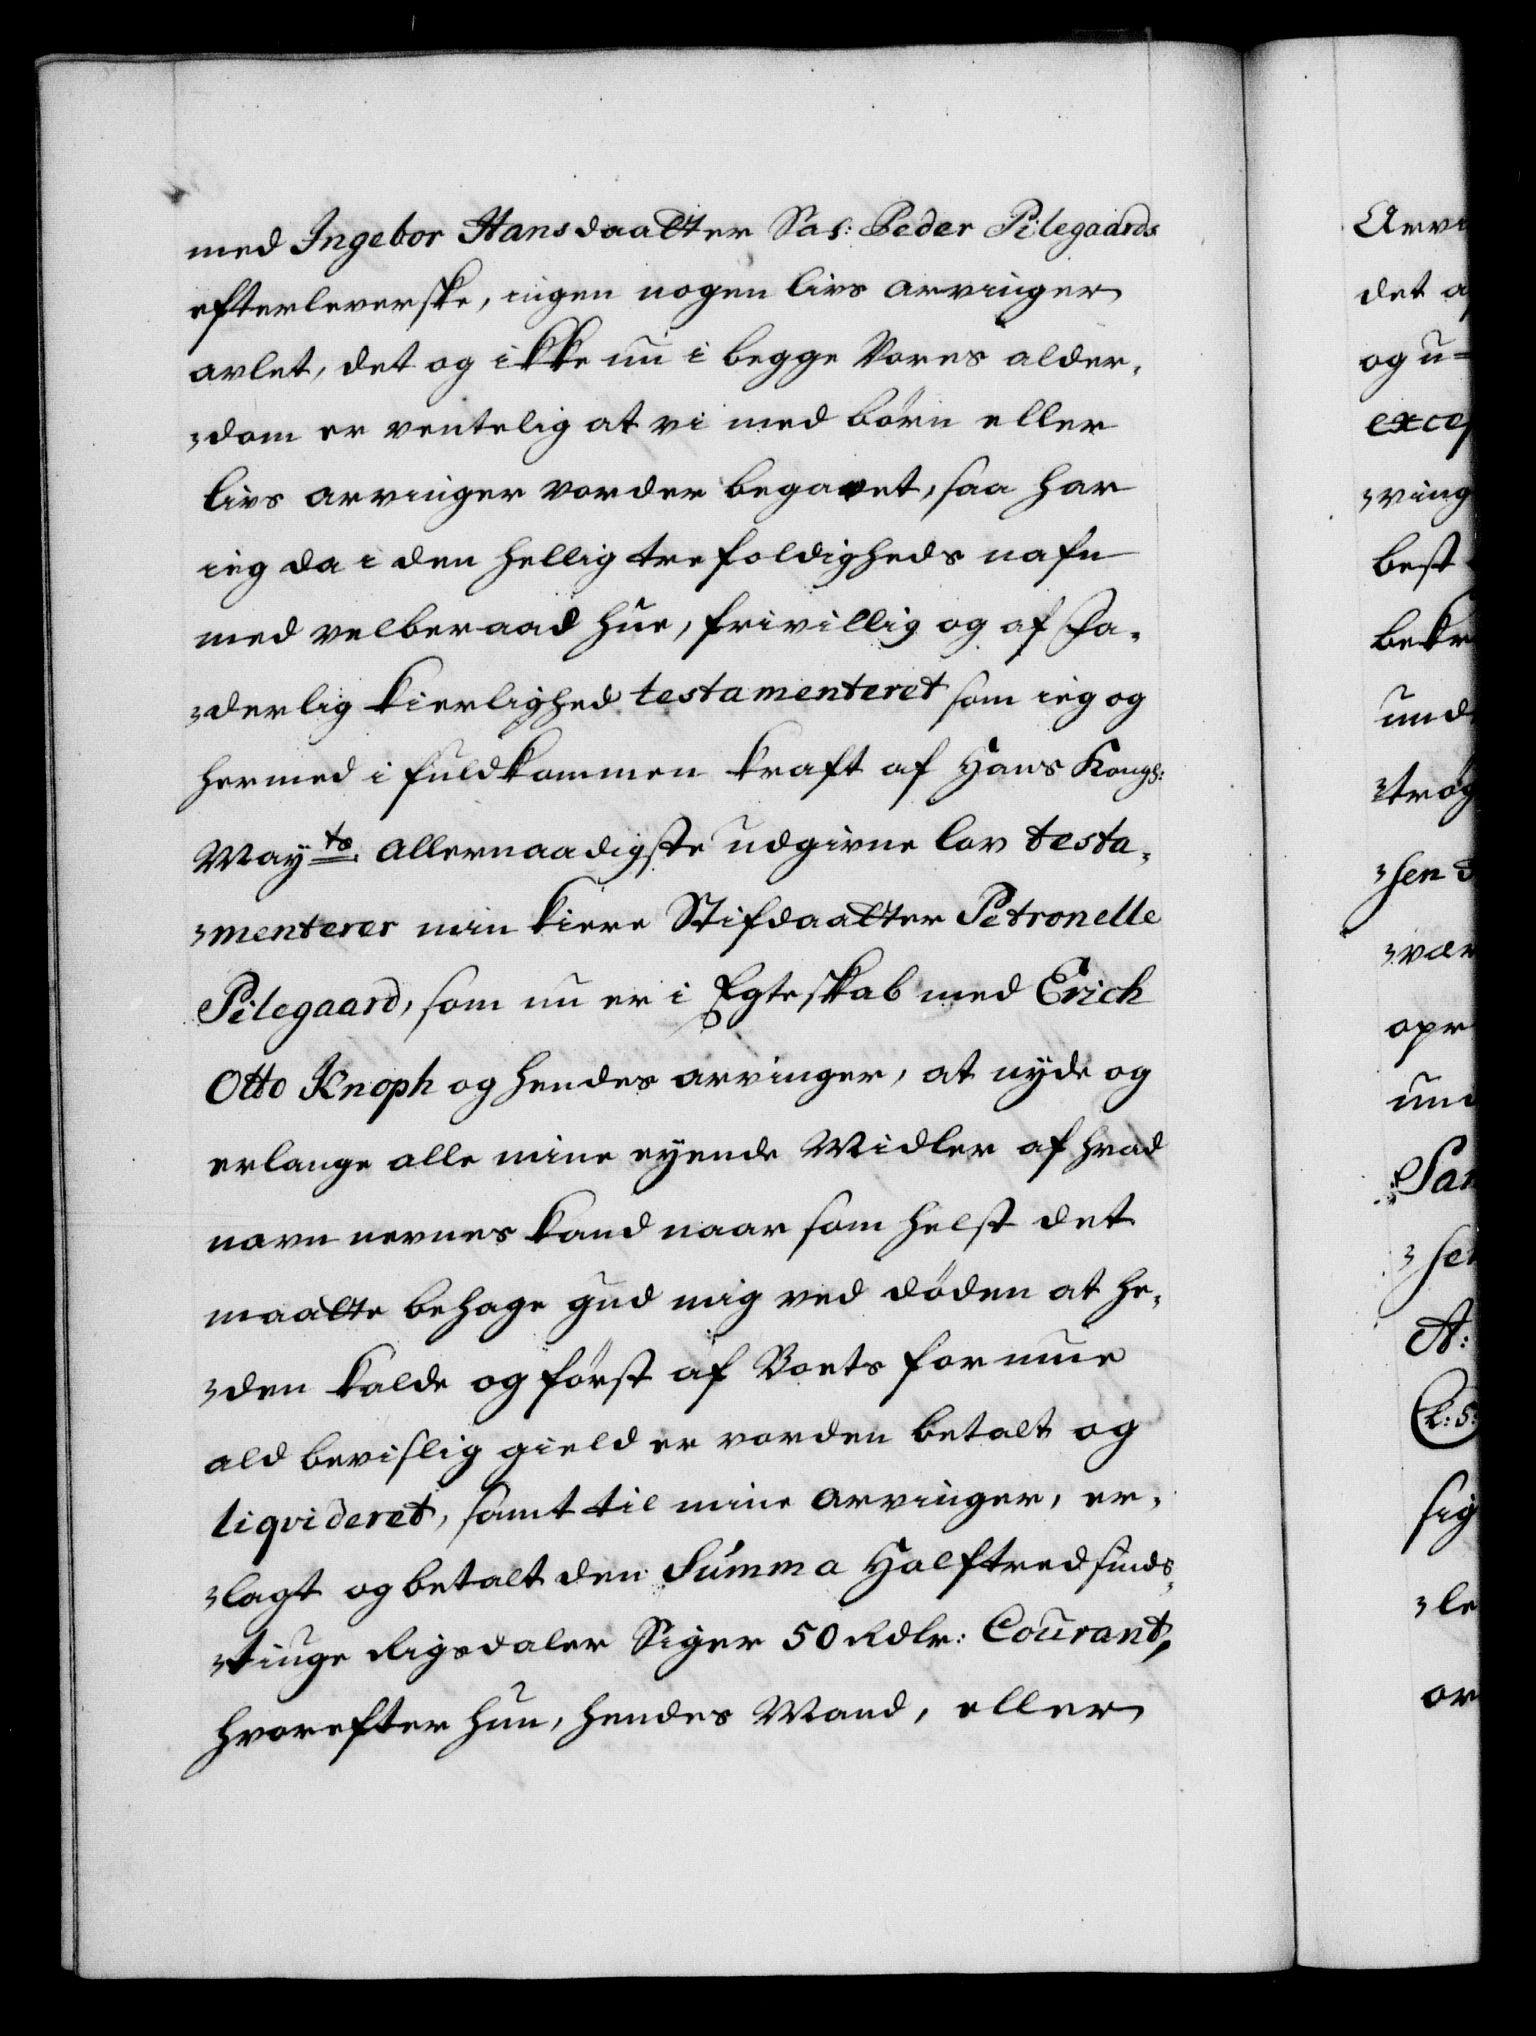 med Ingebor Hansdaatter Sal: Peder Pilegaards
efterleverske, ingen nogen livs arvinger
avlet, det og ikke nu i begge Vores alder,
dom er ventelig at vi med børn eller
livs arvinger vorder begavet, saa har
ieg da i den hellig trefoldigheds nafn
med velberaad hue, frivillig og af Fa,
derlig kierlighed testamenteret som ieg og
hermed i fuldkommen kraft af Hans Kongl:
May.ts. allernaadigste udgivne lov testa,
menterer min kiere Stifdaatter Petronelle
Pilegaard, som nu er i Egteskab med Erich
Otto Knoph og hendes arvinger, at nyde og
erlange alle mine eyende Midler af hvad
navn nevnes kand naar som helst det
maatte behage gud mig ved døden at he,
den kalde og først af Boets formue
ald bevislig gield er vorden betalt og
liqvideret, samt til mine arvinger, er,
lagt og betalt den Summa Halftredsinds,
tiuge Rigsdaler Siger 50 Rdlr: Courant,
hvorefter hun, hendes Mand, eller
Arvi
det a
og u=
excep
ving
best
bekr
und
trøg
sen
vær
opr
und
San
sen
A:
(L:S:
sig
le
or